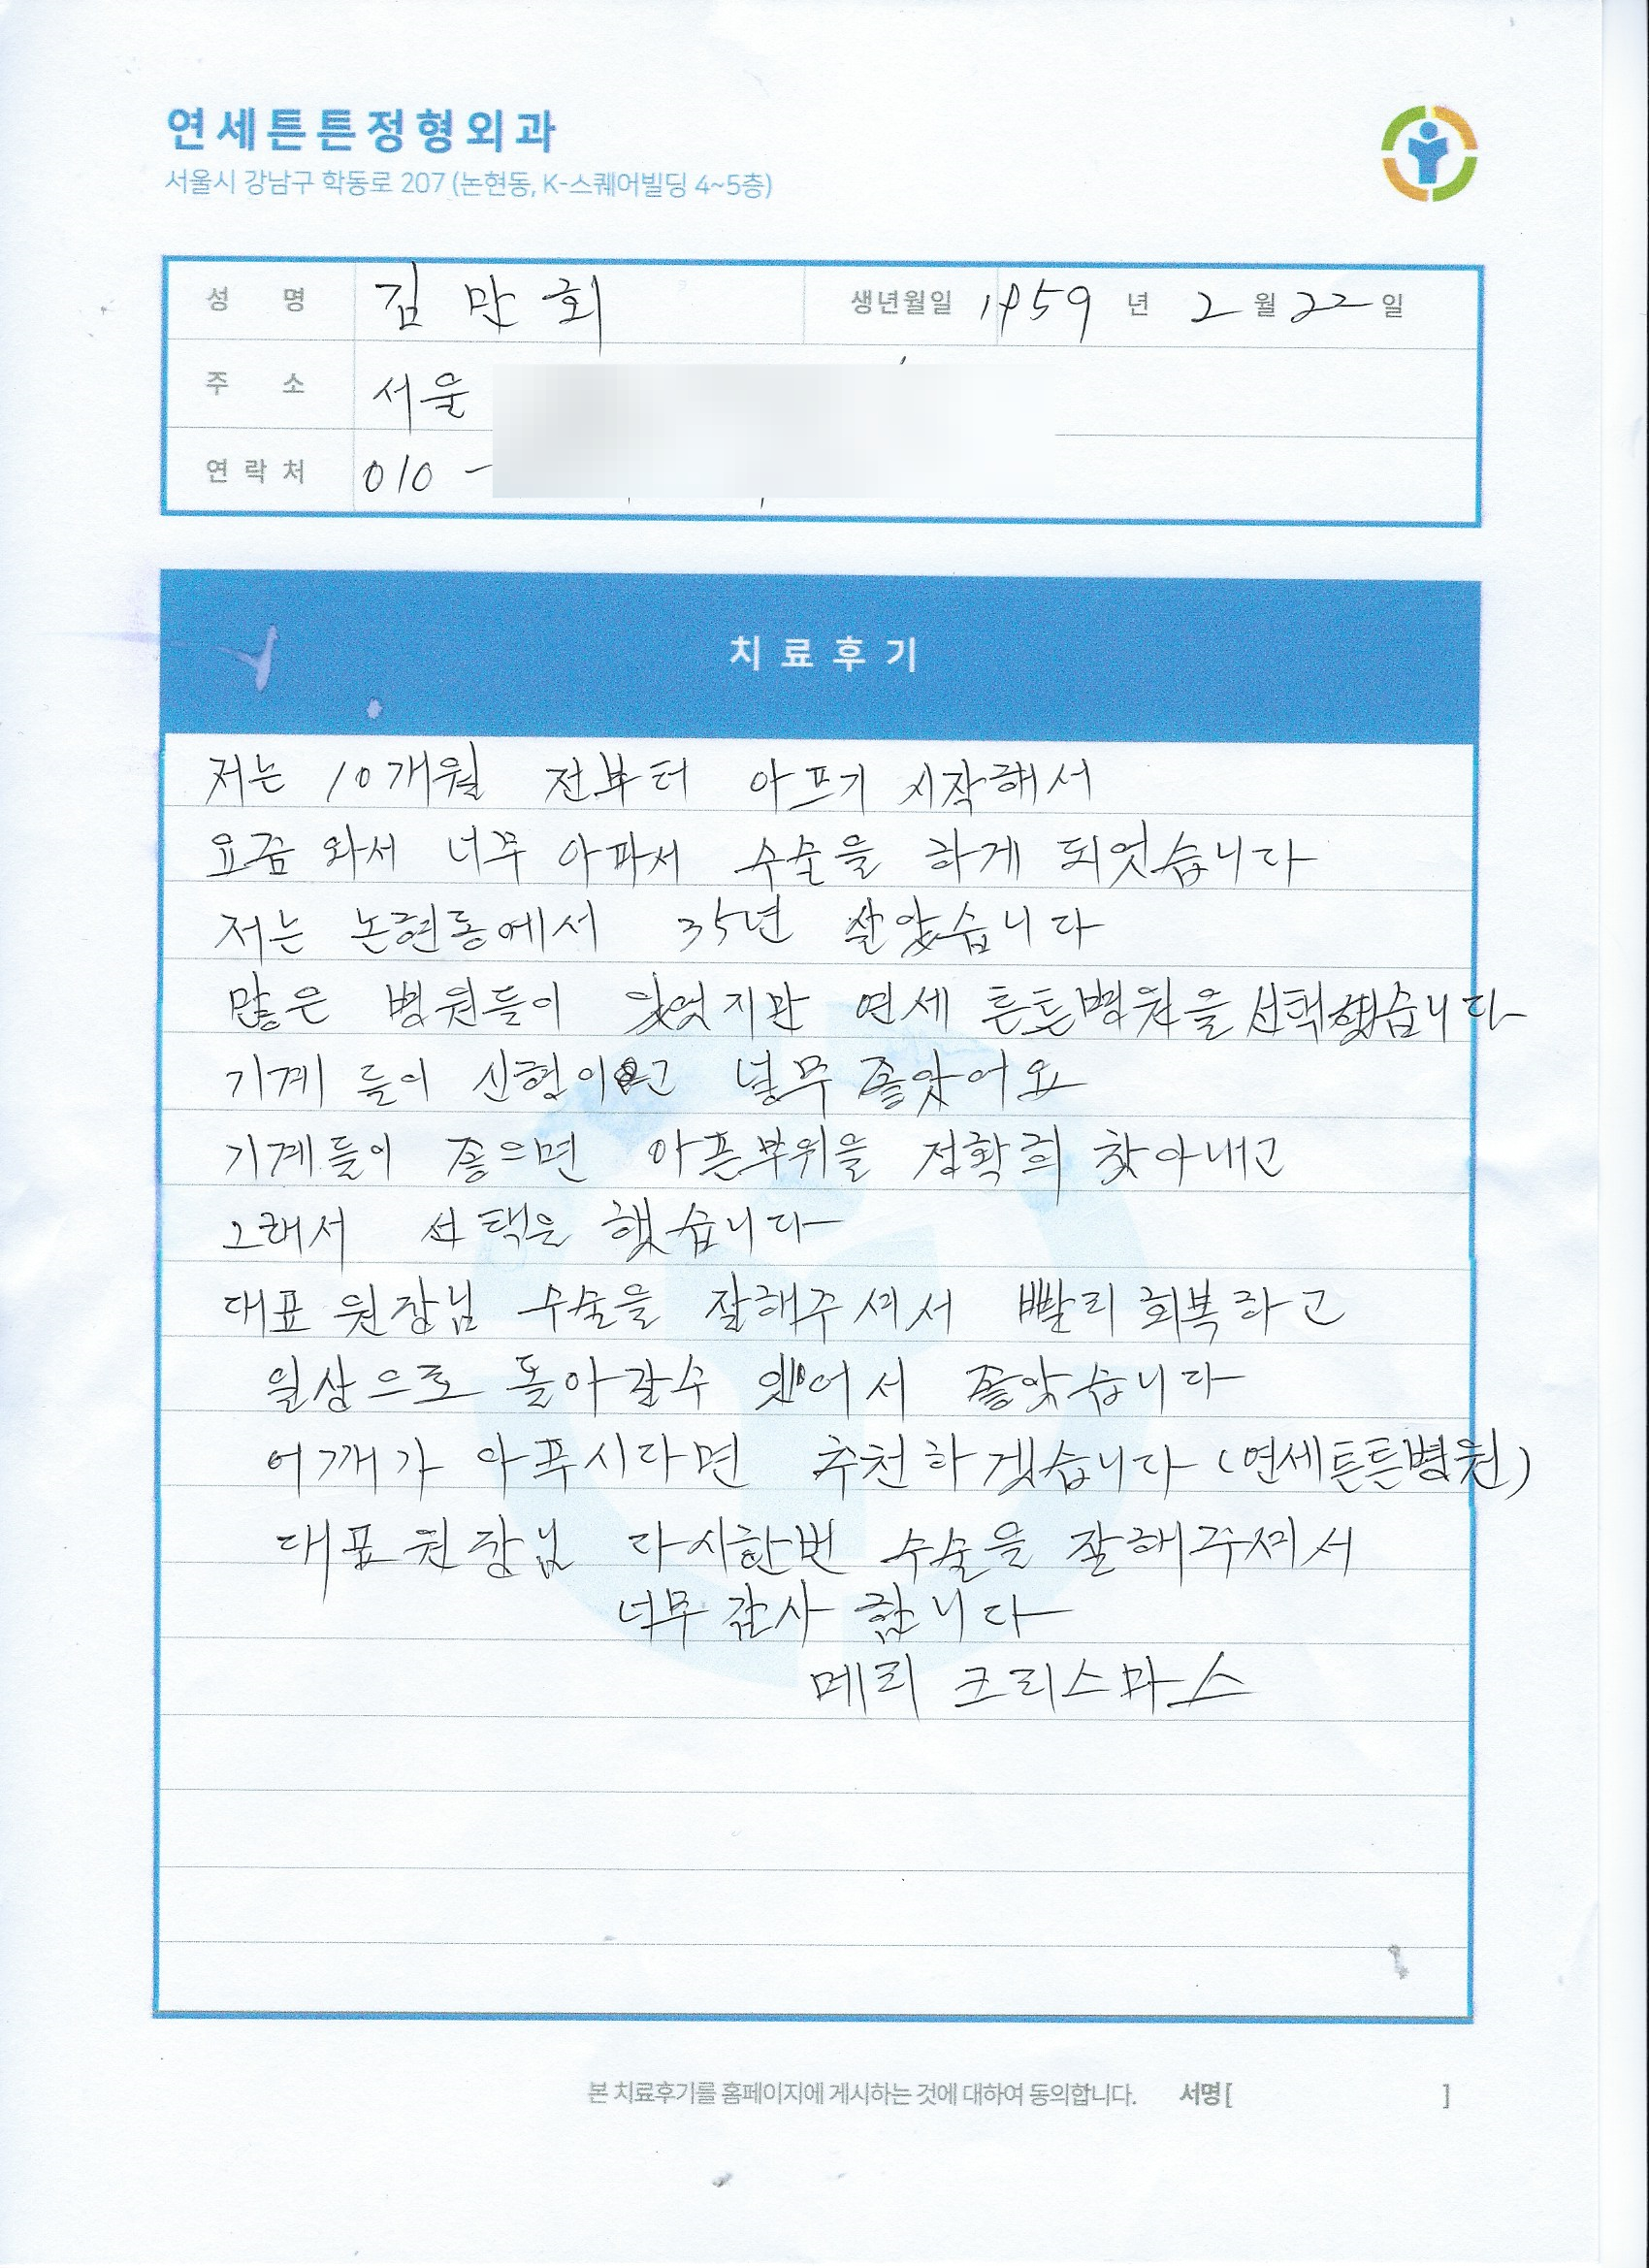 연세튼튼정형외과
서울시 강남구 학동로 207 (논현동, K-스퀘어빌딩 4~5층)
성 명 김만회 생년월일 1959 년 2 월 22 일
주 소 서울
연락처 010 -
치료후기
저는 10개월 전부터 아프기 시작해서
요즘 와서 너무 아파서 수술을 하게 되었습니다
저는 논현동에서 35년 살았습니다
많은 병원들이 있었지만 연세 튼튼병원을 선택했습니다
기계 들이 신형이고 넘무 좋았어요
기계들이 좋으면 아픈부위을 정확희 찾아내고
그래서 선택은 했습니다
대표 원장님 수술을 잘해주셔서 빨리 회복하고
일상으로 돌아갈수 있어서 좋았습니다
어깨가 아푸시다면 추천하겠습니다 (연세튼튼병원)
대표 원장님 다시한번 수술을 잘해주셔서
너무 감사 합니다
메리 크리스마스
본 치료후기를 홈페이지에 게시하는 것에 대하여 동의합니다. 서명 [ ]